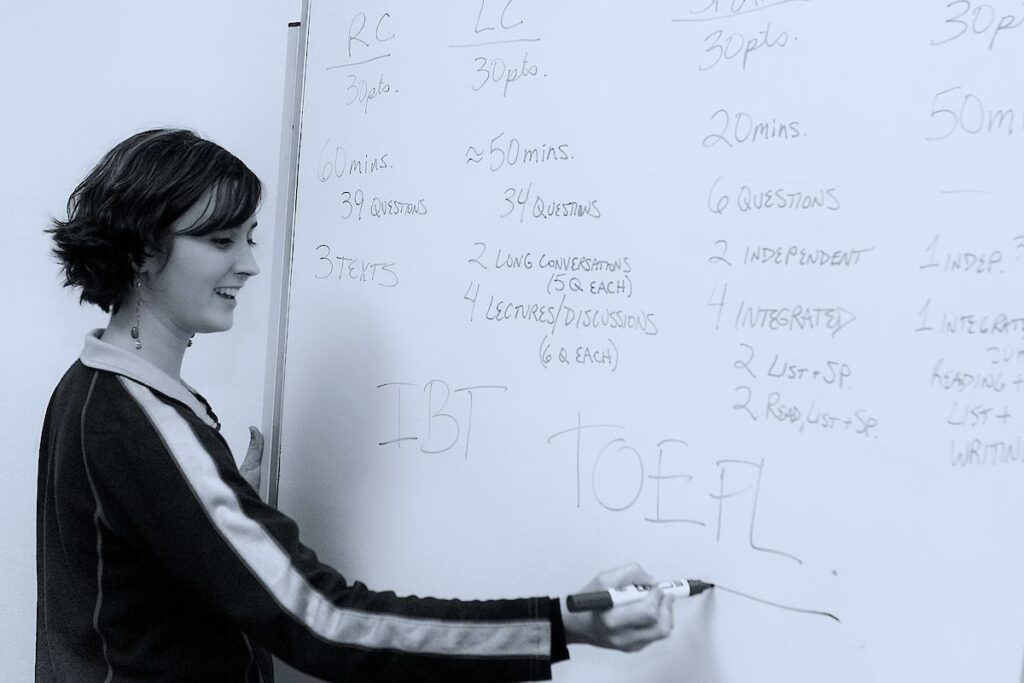 RC
30pts.
60mins.
39 QUESTIONS
3 TEXTS
LC
30pts.
≈50mins.
34 QUESTIONS
2 LONG CONVERSATIONS
(5 Q EACH)
4 LECTURES/DISCUSSIONS
(6 Q EACH)
30pts.
20mins.
6 QUESTIONS
2 INDEPENDENT
4 INTEGRATED
2 LIST + SP.
2 READ, LIST + SP.
30p
50m
—
1 INDEP. 3
1 INTEGRATE
READING +
LIST +
WRITING
IBT
TOEFL